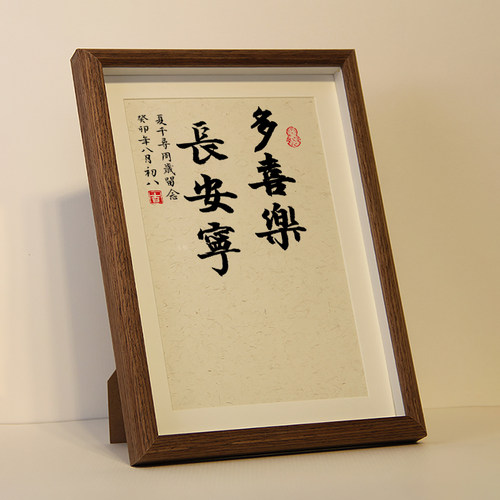 多喜樂
長安寧
夏千尋周歲留念
癸卯年八月初八